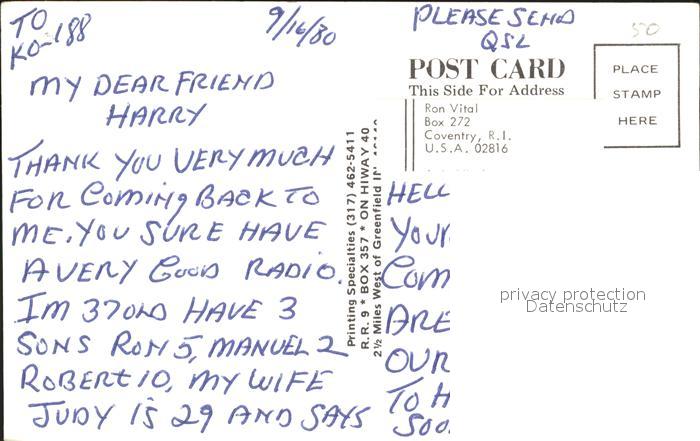 TO
KO-188
9/16/80
MY DEAR FRIEND
HARRY
THANK YOU VERY MUCH
FOR COMING BACK TO
ME. YOU SURE HAVE
A VERY GOOD RADIO.
IM 37 OLD HAVE 3
SONS RON 5, MANUEL 2
ROBERT 10, MY WIFE
JUDY IS 29 AND SAYS
Printing Specialties (317) 462-5411
R. R. 9 * BOX 357 * ON HIWAY 40
2½ Miles West of Greenfield
PLEASE SEND
QSL
50
POST CARD
This Side For Address
PLACE
STAMP
HERE
Ron Vital
Box 272
Coventry, R.I.
U.S.A. 02816
HELL
YOUR
COM
ARE
OUR
TO H
SOO
privacy protection
Datenschutz